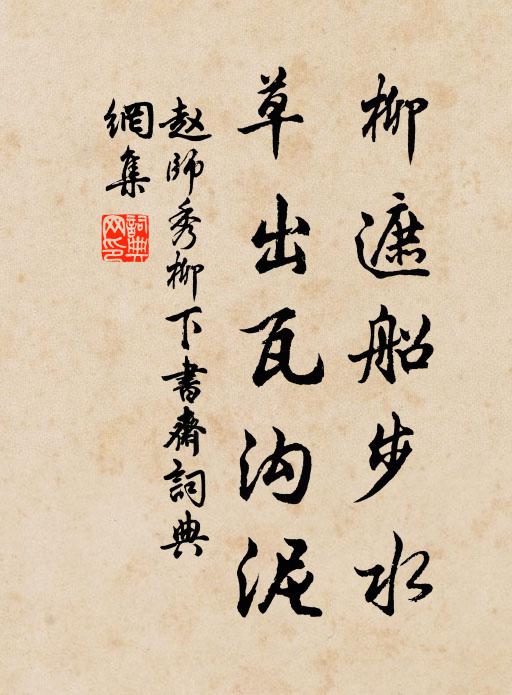 柳遮船步水
草出瓦沟泥
赵師秀柳下書齋詞典
網集
詞典网印